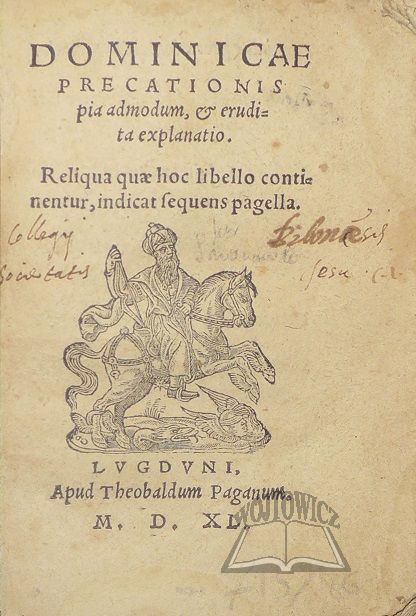 DOMINICAE
PRECATIONIS
pia admodum, & erudi-
ta explanatio.
Reliqua quæ hoc libello conti-
nentur, indicat sequens pagella.
Collegij
Societatis Jesu
LVGDVNI,
Apud Theobaldum Paganum.
M. D. XL.
WÓJTOWICZ